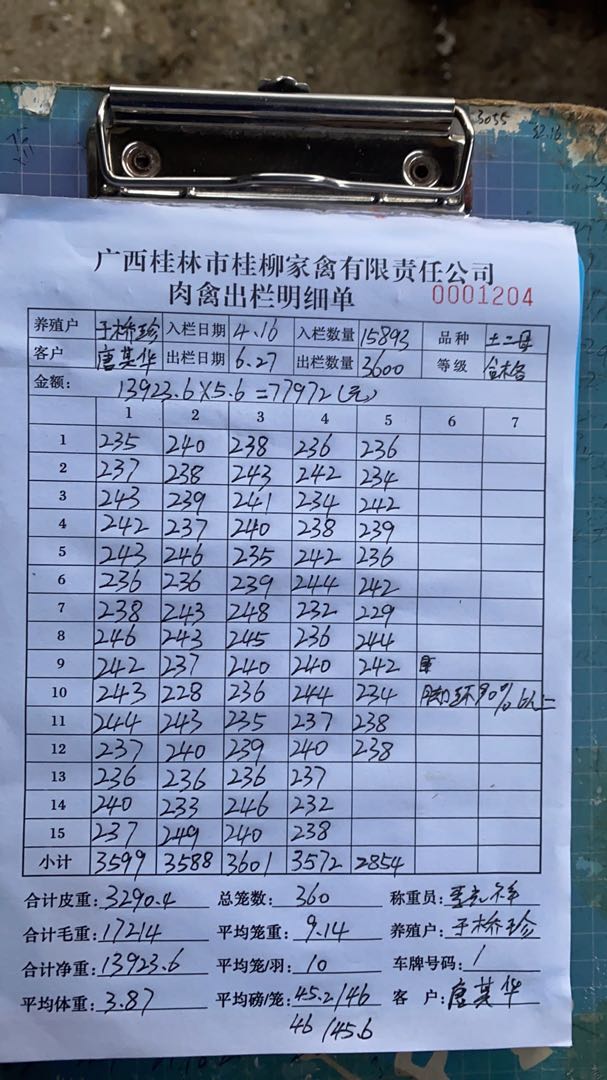 广西桂林市桂柳家禽有限责任公司
肉禽出栏明细单 0001204
养殖户 于桥珍 入栏日期 4.16 入栏数量 15893 品种 土二母
客户 唐其华 出栏日期 6.27 出栏数量 3600 等级 合格
金额: 13923.6×5.6=77972(元)
1 2 3 4 5 6 7
1 235 240 238 236 236
2 237 238 243 242 234
3 243 239 241 234 242
4 242 237 240 238 239
5 243 246 235 242 236
6 236 236 239 244 242
7 238 243 248 232 229
8 246 243 245 236 244
9 242 237 240 240 242
10 243 228 236 244 234 脚环90%以上
11 244 243 235 237 238
12 237 240 239 240 238
13 236 236 236 237
14 240 233 246 232
15 237 249 240 238
小计 3599 3588 3601 3572 2854
合计皮重: 3290.4 总笼数: 360 称重员:
合计毛重: 17214 平均笼重: 9.14 养殖户: 于桥珍
合计净重: 13923.6 平均笼/羽: 10 车牌号码: 1
平均体重: 3.87 平均磅/笼: 45.2/46 客 户: 唐其华
46/45.6